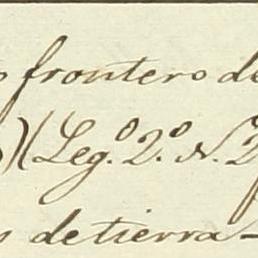 frontero de
(Leg.º 2.º N. 2
de tierra